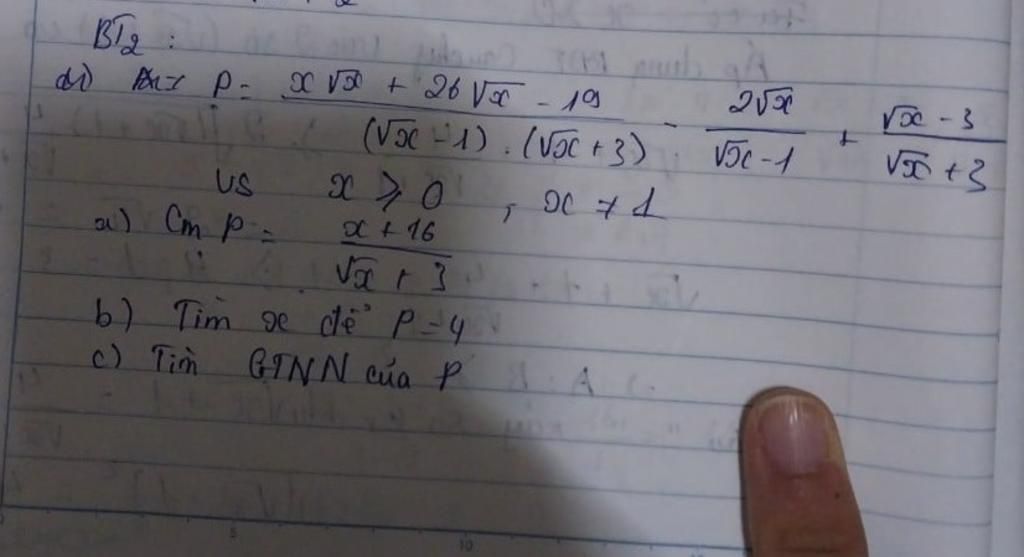 BT2 :
P = x√x + 26√x - 19 / (√x - 1) . (√x + 3) - 2√x / √x - 1 + √x - 3 / √x + 3
vs x ⩾ 0 , x ≠ 1
a) Cm P = x + 16 / √x + 3
b) Tìm x để P = 4
c) Tìm GTNN của P